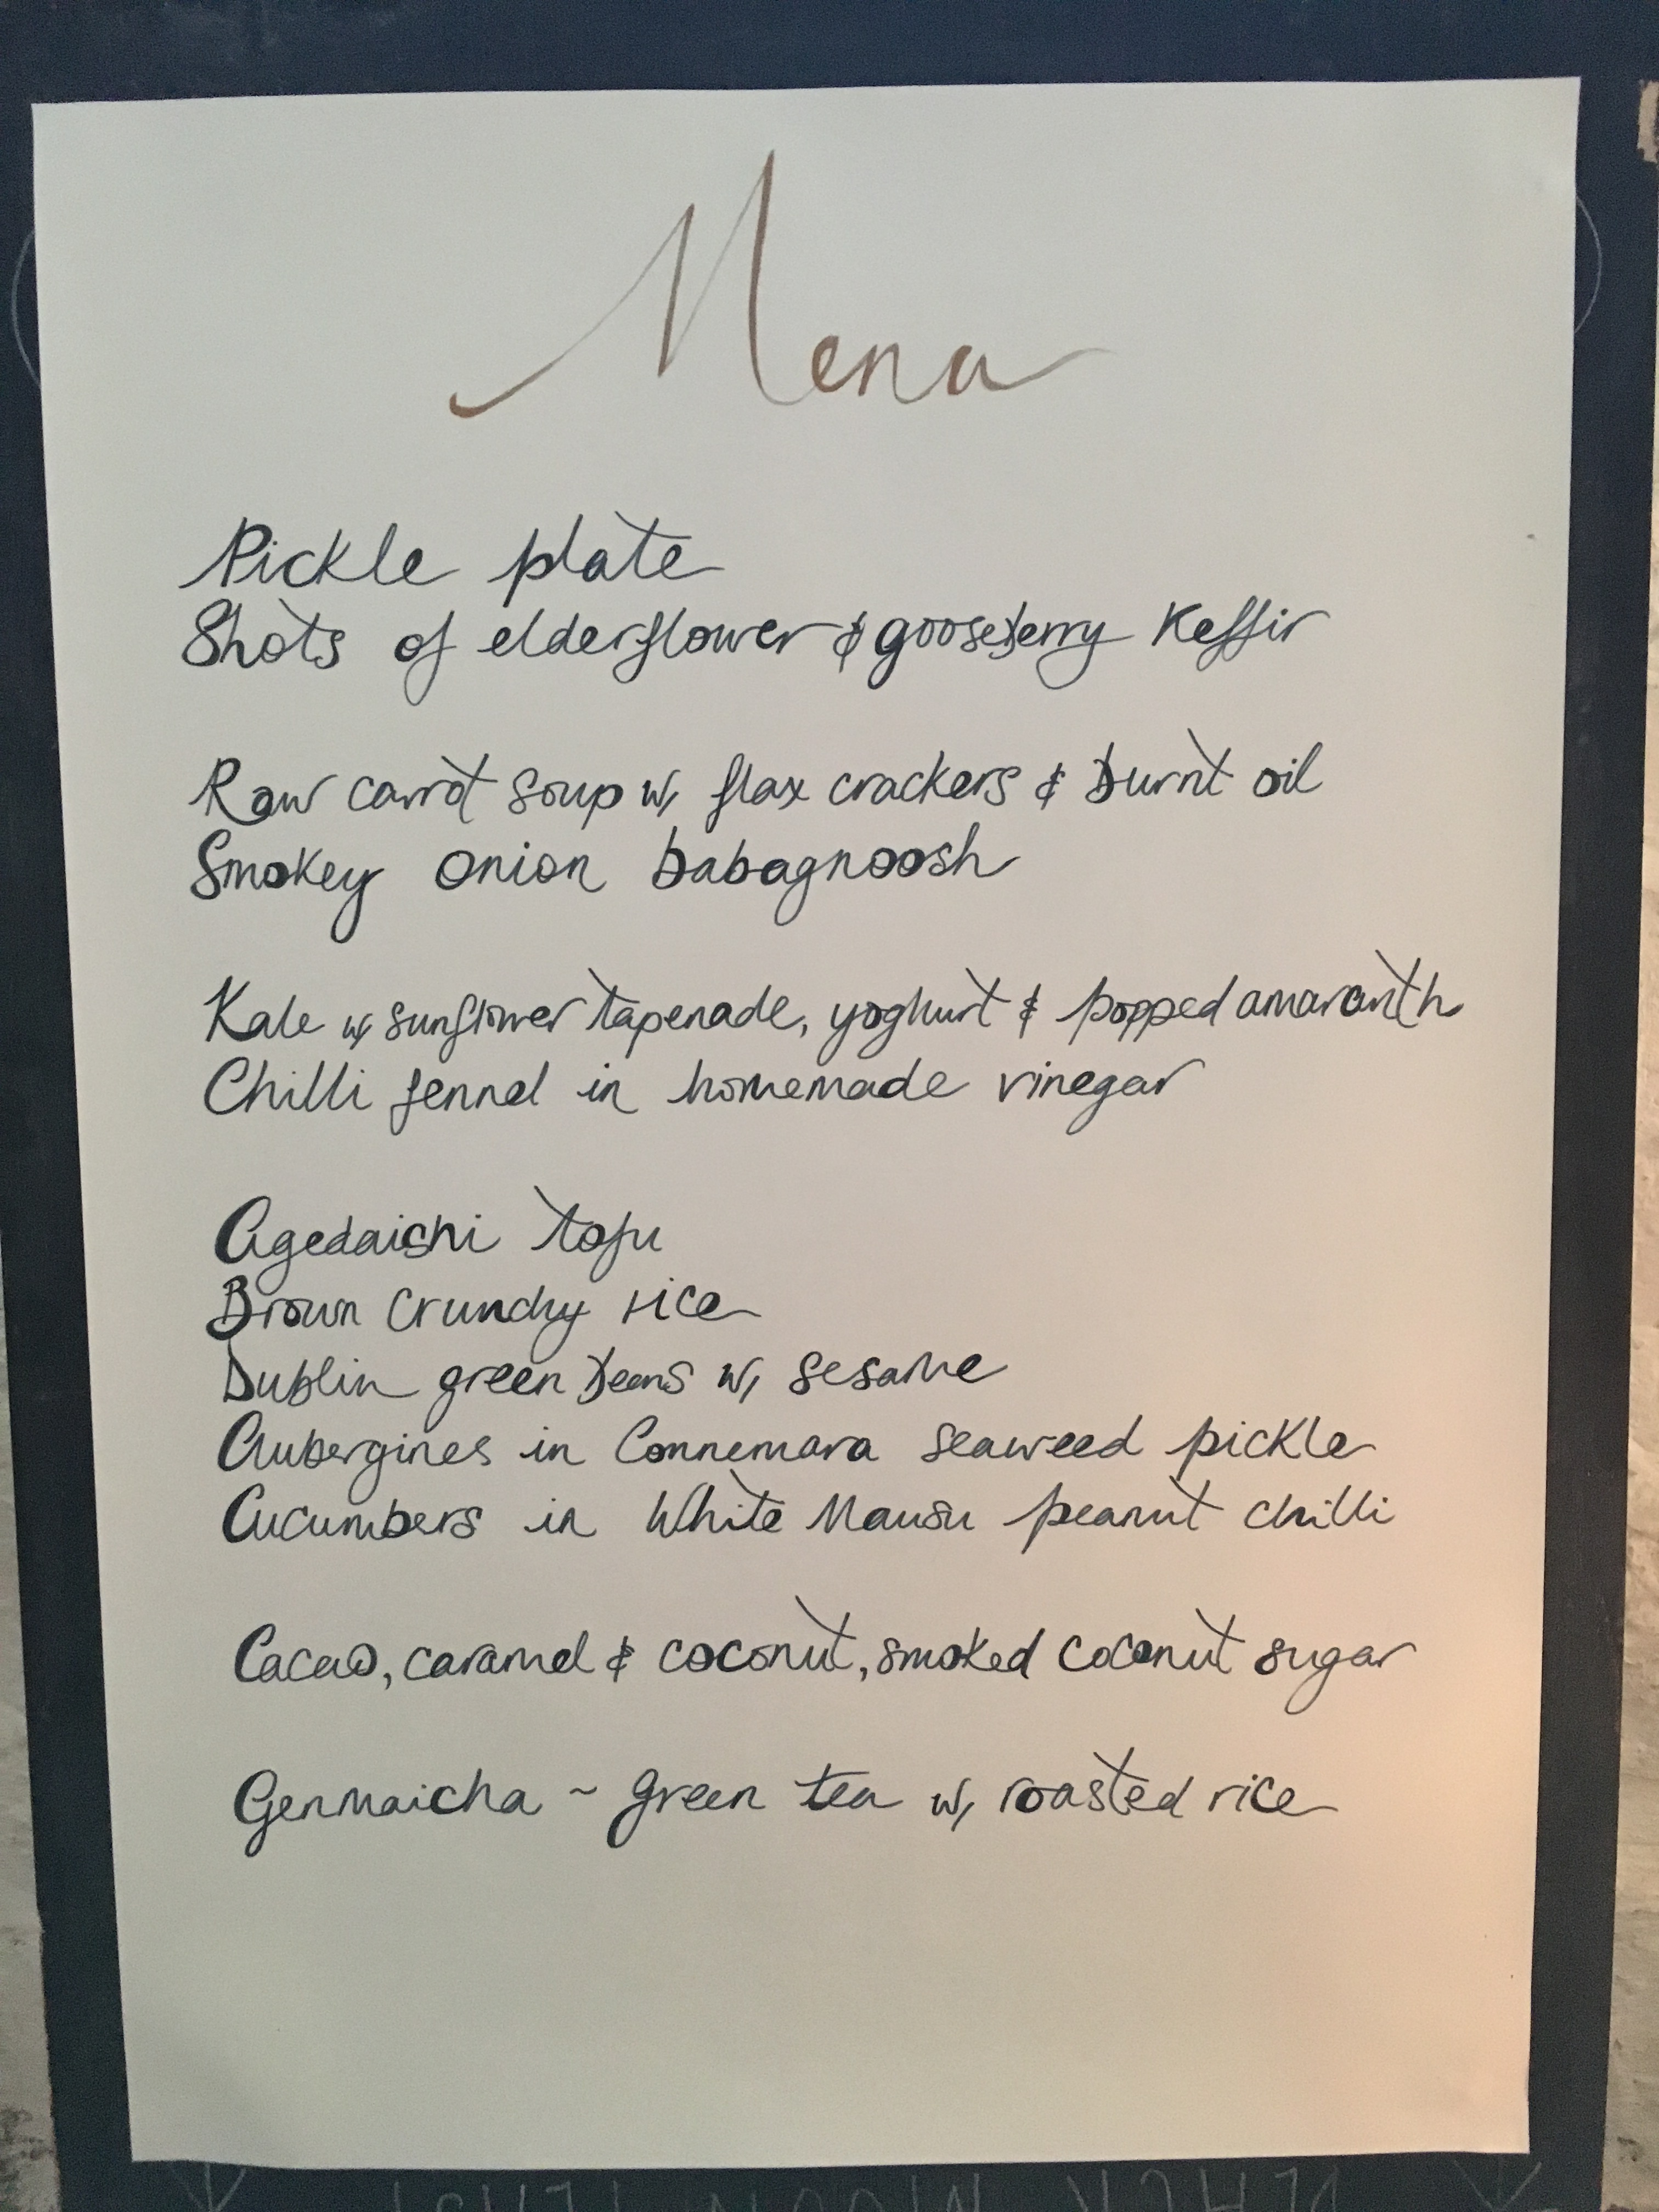 Menu
Pickle plate
Shots of elderflower & gooseberry Keffir
Raw carrot soup w, flax crackers & burnt oil
Smokey onion babagnoosh
Kale w, sunflower tapenade, yoghurt & popped amaranth
Chilli fennel in homemade vinegar
Agedaishi tofu
Brown crunchy rice
Dublin green beans w, sesame
Aubergines in Connemara seaweed pickle
Cucumbers in White Mausu peanut chilli
Cacao, caramel & coconut, smoked coconut sugar
Genmaicha ~ green tea w, roasted rice